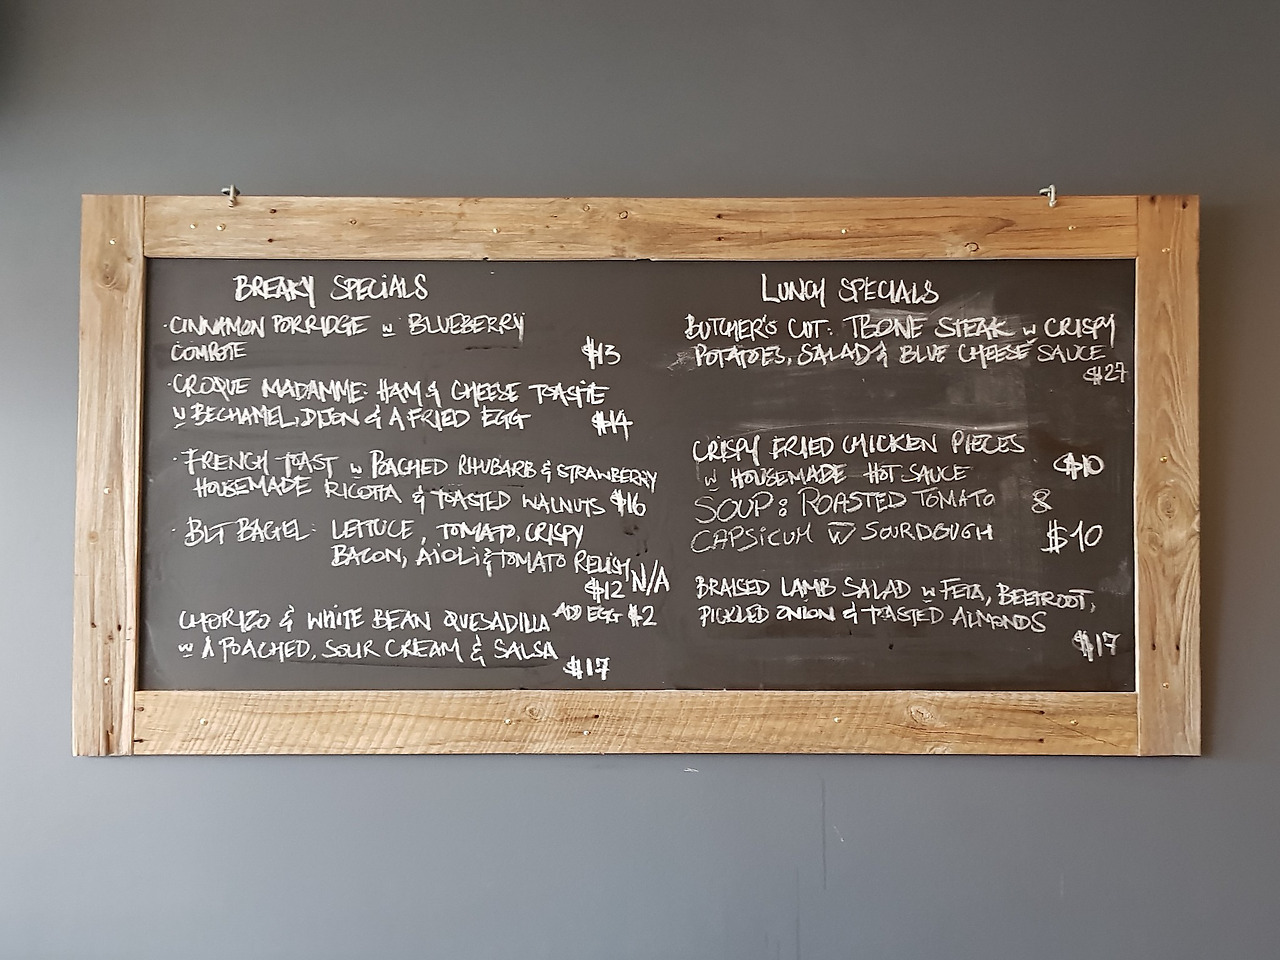 BREAKY SPECIALS
·CINNAMON PORRIDGE w BLUEBERRY
COMPOTE $13
·CROQUE MADAMME: HAM & CHEESE TOASTIE
w BECHAMEL, DIJON & A FRIED EGG $14
·FRENCH TOAST w POACHED RHUBARB & STRAWBERRY
HOUSEMADE RICOTTA & TOASTED WALNUTS $16
·BLT BAGEL: LETTUCE, TOMATO, CRISPY
BACON, AIOLI & TOMATO RELISH
$12 N/A
ADD EGG $2
CHORIZO & WHITE BEAN QUESADILLA
w A POACHED, SOUR CREAM & SALSA
$17
LUNCH SPECIALS
BUTCHER'S CUT: TBONE STEAK w CRISPY
POTATOES, SALAD & BLUE CHEESE SAUCE
$27
CRISPY FRIED CHICKEN PIECES
w HOUSEMADE HOT SAUCE $10
SOUP: ROASTED TOMATO &
CAPSICUM W SOURDOUGH $10
BRAISED LAMB SALAD w FETA, BEETROOT,
PICKLED ONION & TOASTED ALMONDS
$17